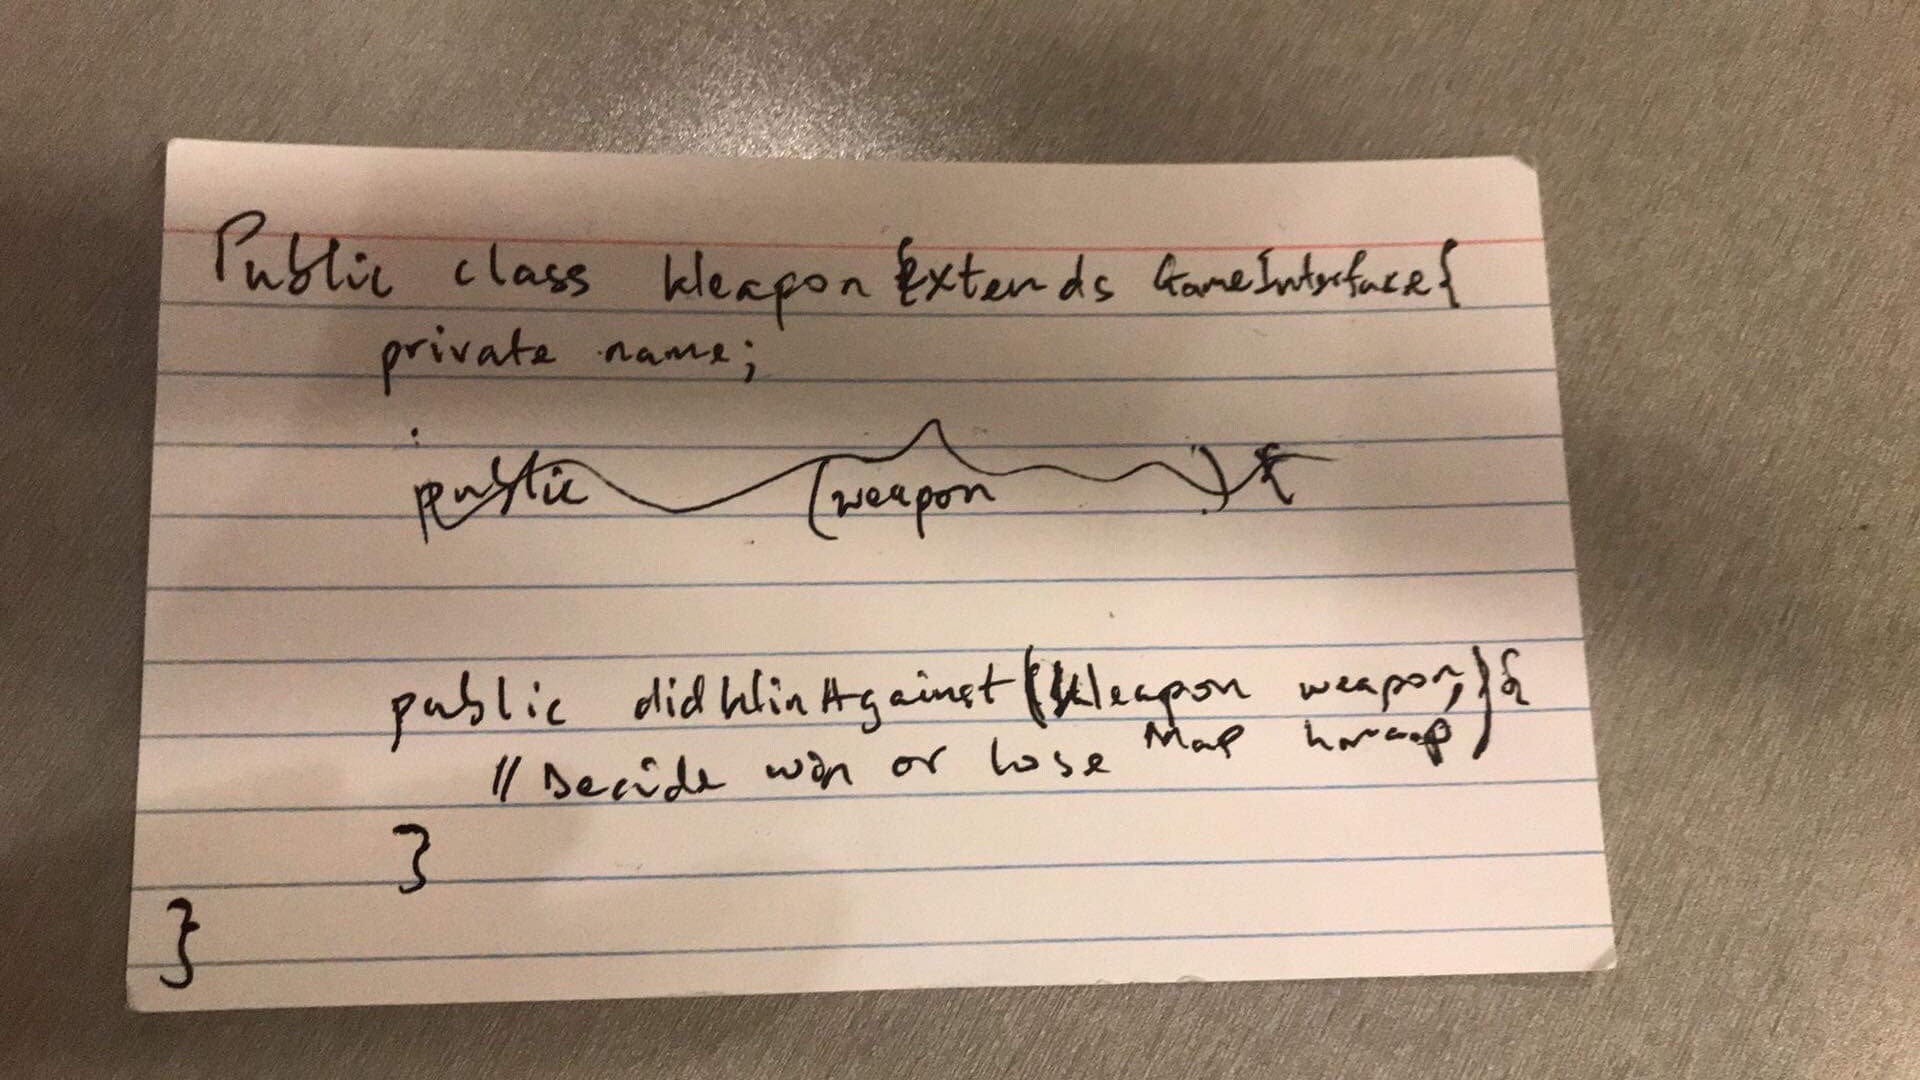 Public class Weapon Extends GameInterface{
private name;
public (weapon ) {
public didWinAgainst (Weapon weapon, ){
Map
// Decide win or lose
}
}